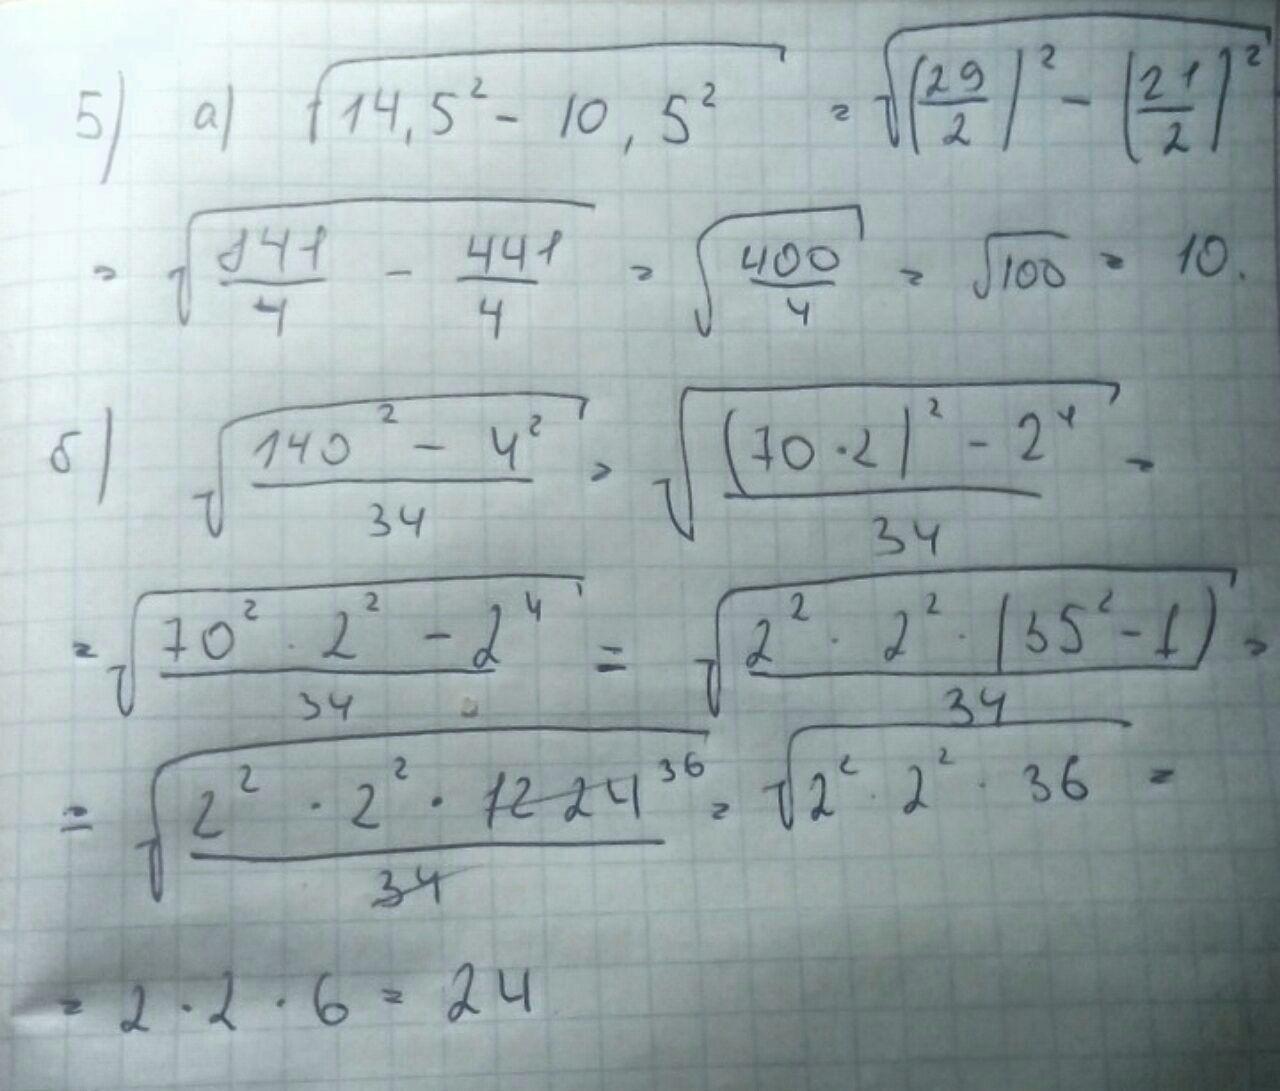 5) а) √(14,5² - 10,5²) = √((29/2)² - (21/2)²)
= √(841/4 - 441/4) = √(400/4) = √100 = 10.
б) √((140² - 4²)/34) = √(((70·2)² - 2⁴)/34) =
= √((70² · 2² - 2⁴)/34) = √((2² · 2² · (35² - 1))/34) =
= √((2² · 2² · 1224 36)/34) = √(2² · 2² · 36) =
= 2 · 2 · 6 = 24